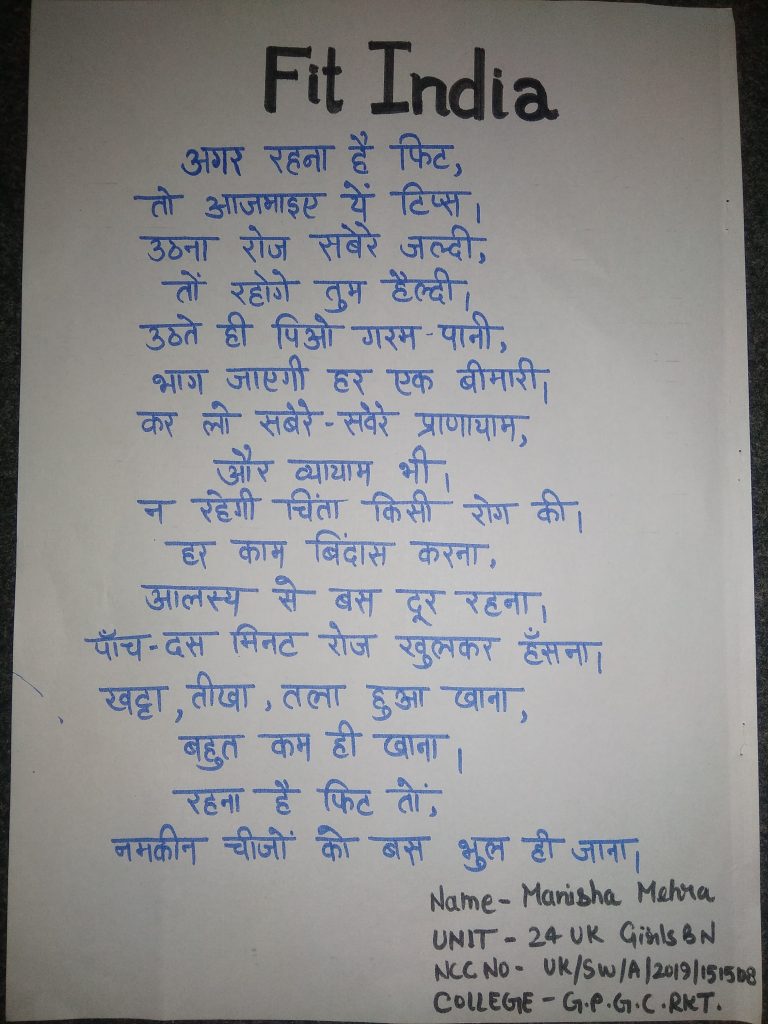 Fit India
अगर रहना है फिट,
तो आजमाइए यें टिप्स।
उठना रोज सबेरे जल्दी,
तों रहोगे तुम हैल्दी।
उठते ही पिओ गरम-पानी,
भाग जाएगी हर एक बीमारी।
कर लो सबेरे-सवेरे प्राणायाम,
और व्यायाम भी।
न रहेगी चिंता किसी रोग की।
हर काम बिंदास करना,
आलस्य से बस दूर रहना।
पाँच-दस मिनट रोज खुलकर हँसना।
खट्टा, तीखा, तला हुआ खाना,
बहुत कम ही खाना।
रहना है फिट तों,
नमकीन चीजों को बस भुल ही जाना।
Name- Manisha Mehra
UNIT - 24 UK Girls BN
NCC NO- UK/SW/A/2019/151508
COLLEGE - G.P.G.C. RKT.